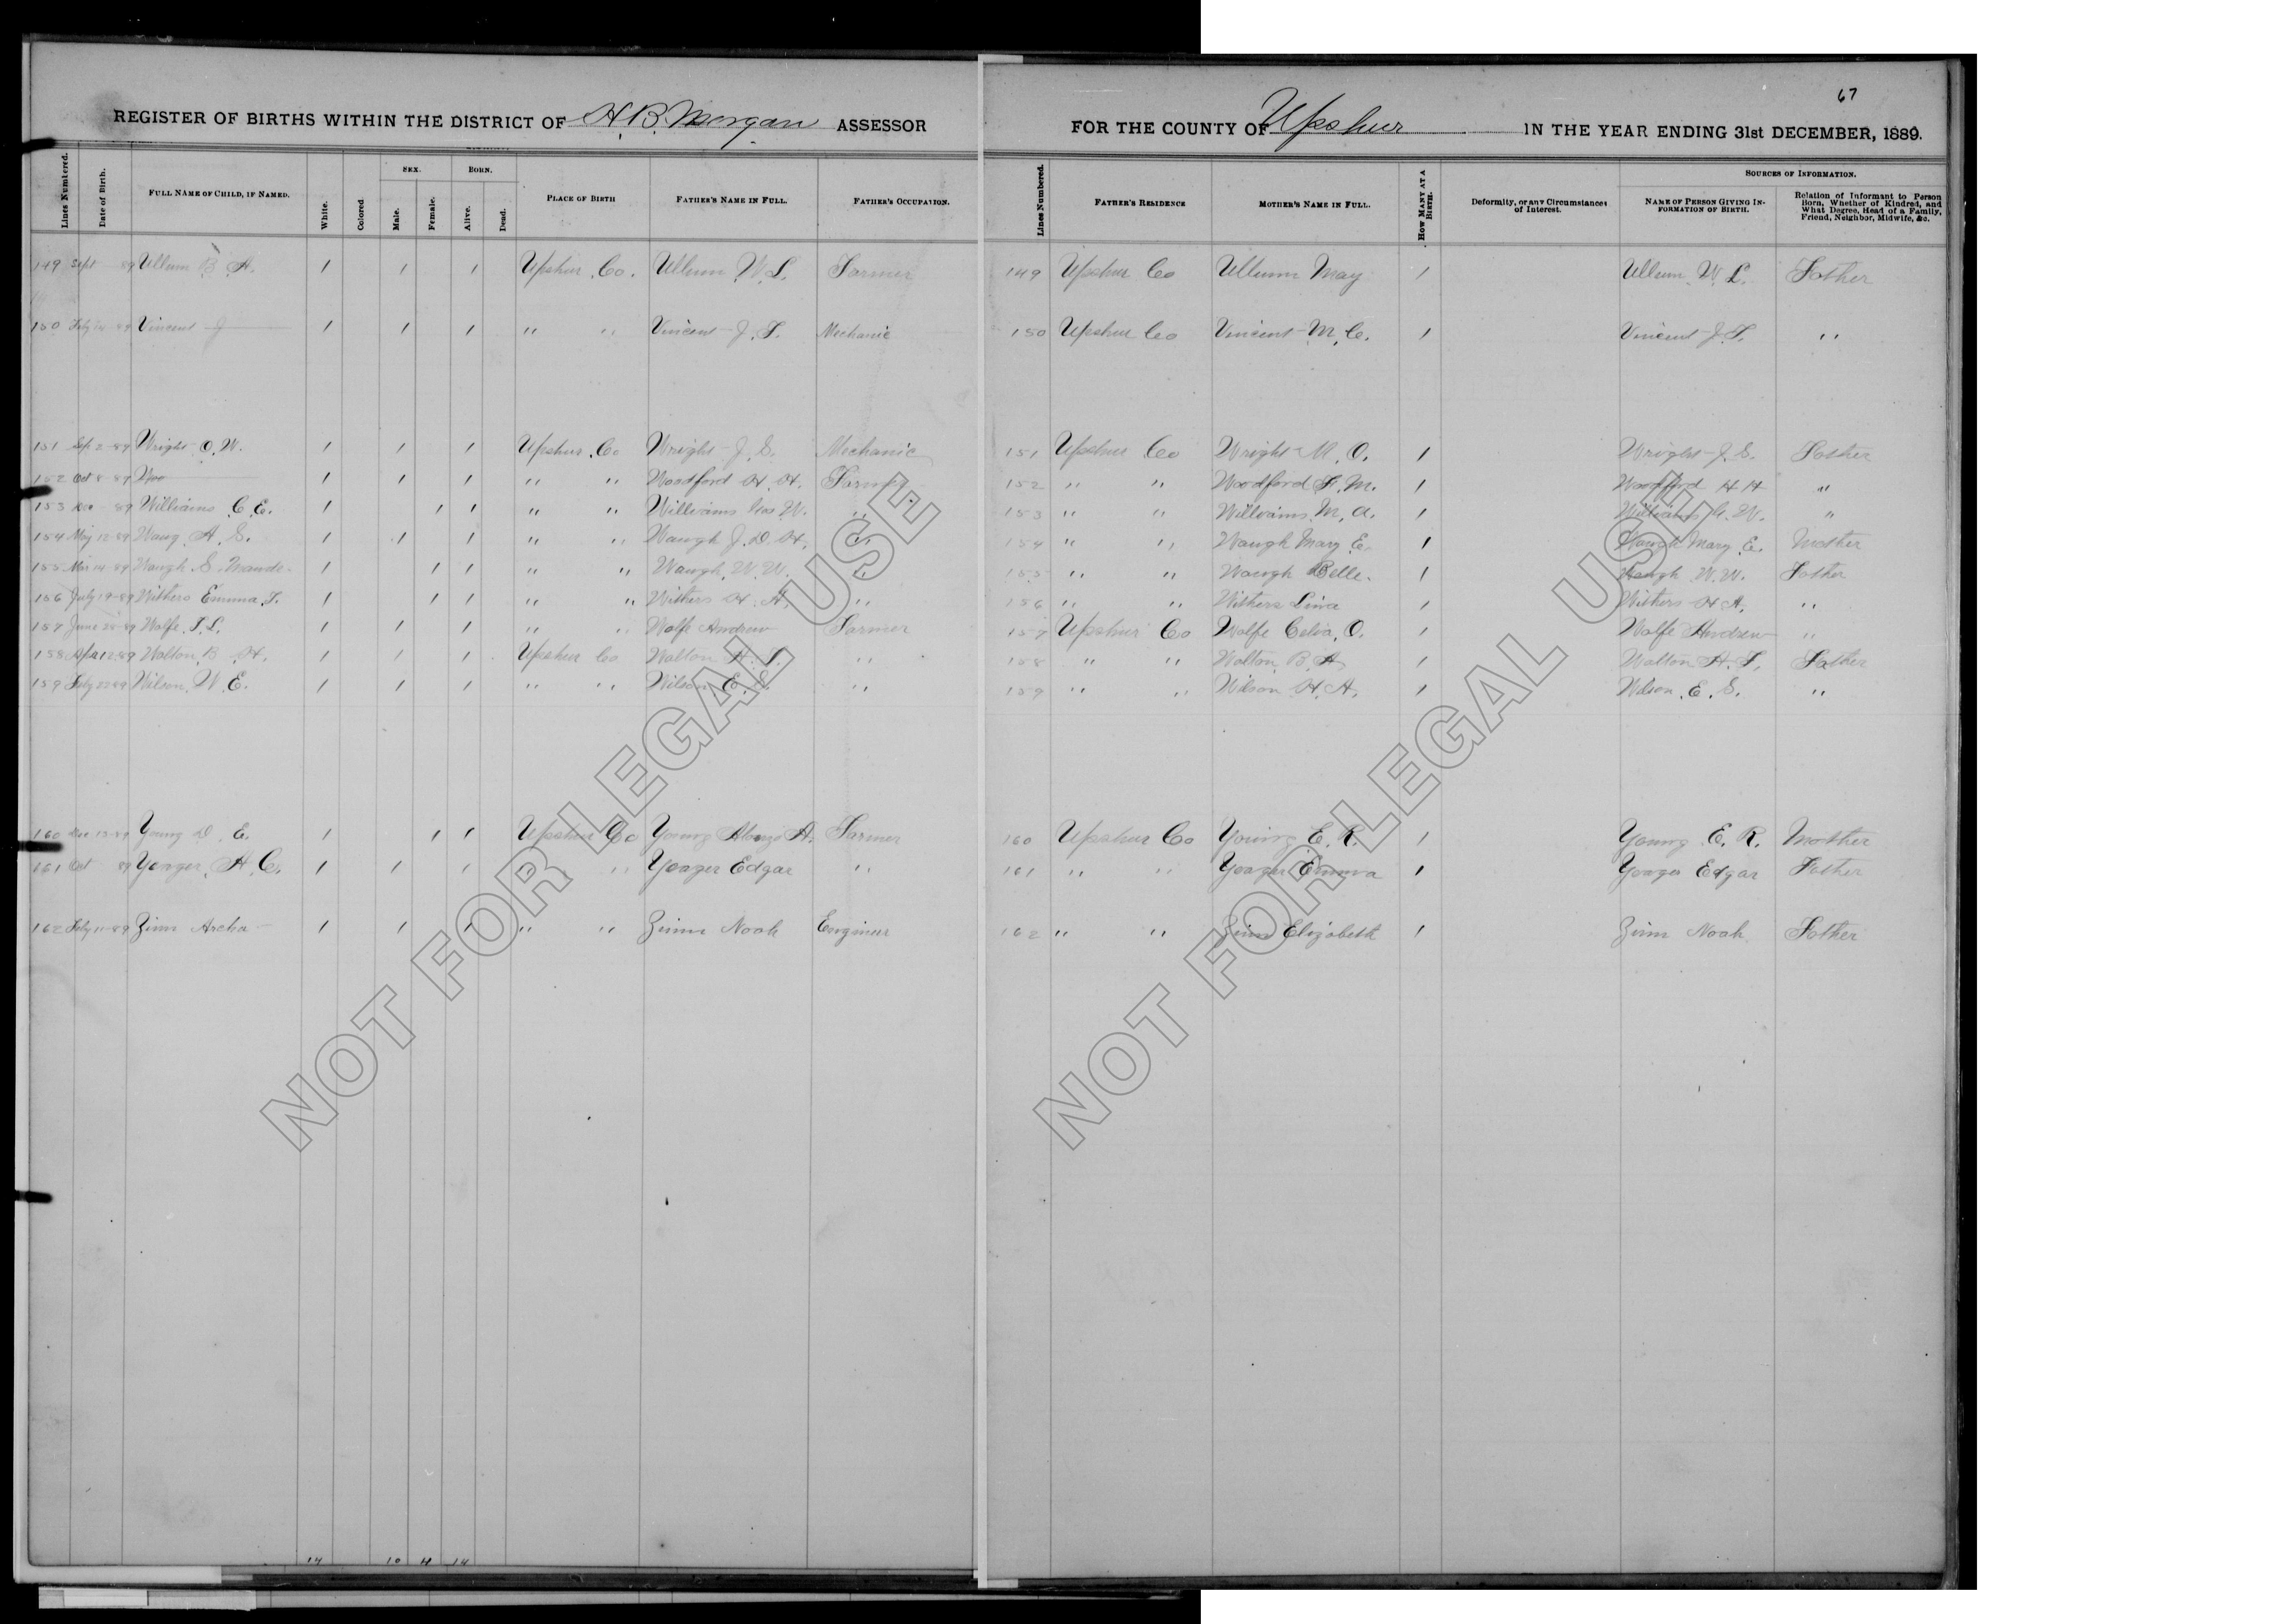 67
REGISTER OF BIRTHS WITHIN THE DISTRICT OF H. B. Morgan ASSESSOR FOR THE COUNTY OF Upshur IN THE YEAR ENDING 31st DECEMBER, 1889.
Lines Numbered. Date of Birth. FULL NAME OF CHILD, IF NAMED. White. Colored SEX. Male. Female. BORN. Alive. Dead. PLACE OF BIRTH FATHER'S NAME IN FULL. FATHER'S OCCUPATION. Lines Numbered. FATHER'S RESIDENCE MOTHER'S NAME IN FULL. HOW MANY AT A BIRTH. Deformity, or any Circumstances of Interest. SOURCES OF INFORMATION. NAME OF PERSON GIVING INFORMATION OF BIRTH. Relation of Informant to Person Born, Whether of Kindred, and What Degree, Head of a Family, Friend, Neighbor, Midwife, &c.
149 Sept 89 Ullum B. A. 1 1 1 Upshur Co. Ullum W. L. Farmer 149 Upshur Co Ullum May 1 Ullum W. L. Father
150 14-89 Vincent J 1 1 1 " " Vincent J. F. Mechanic 150 Upshur Co Vincent M. C. 1 Vincent J. F. "
151 Sep 2-89 Wright O. W. 1 1 1 Upshur Co Wright J. S. Mechanic 151 Upshur Co Wright M. O. 1 Wright J. S. Father
152 Oct 8-89 Woo 1 1 1 " " Woodford H. H. Farmer 152 " " Woodford F. M. 1 Woodford H H "
153 89 Williams C. E. 1 1 1 " " Williams Geo W. " 153 " " Williams M. A. 1 Williams G. W. "
154 May 12-89 Waug A. S. 1 1 1 " " Waugh J. D. H. " 154 " " Waugh Mary E. 1 Waugh Mary E. Mother
155 Mar 14-89 Waugh S. Maude 1 1 1 " " Waugh W. W. " 155 " " Waugh Belle. 1 Waugh W. W. Father
156 July 19-89 Withers Emma F. 1 1 1 " " Withers H. A. " 156 " " Withers Lina 1 Withers H A. "
157 June 89 Wolfe F. L. 1 1 1 " " Wolfe Andrew Farmer 157 Upshur Co Wolfe Celia O. 1 Wolfe Andrew "
158 Apr 12 89 Walton B. H. 1 1 1 Upshur Co Walton A. F. " 158 " " Walton B. A 1 Walton A. F. Father
159 22 89 Wilson W. E. 1 1 1 " " Wilson E. S. " 159 " " Wilson H. A. 1 Wilson E. S. "
160 Dec 13-89 Young D. E. 1 1 1 Upshur Co Young Alonzo A. Farmer 160 Upshur Co Young E. R. 1 Young E. R. Mother
161 Oct 89 Yeager A. C. 1 1 1 " " Yeager Edgar " 161 " " Yeager Emma 1 Yeager Edgar Father
162 11-89 Zinn Archa 1 1 1 " " Zinn Noah Engineer 162 " " Zinn Elizabeth 1 Zinn Noah Father
14 10 4 14
NOT FOR LEGAL USE
NOT FOR LEGAL USE